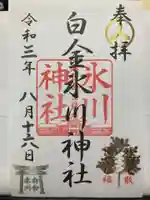 奉拝
白金氷川神社
氷川
神社
令和三年 八月十六日